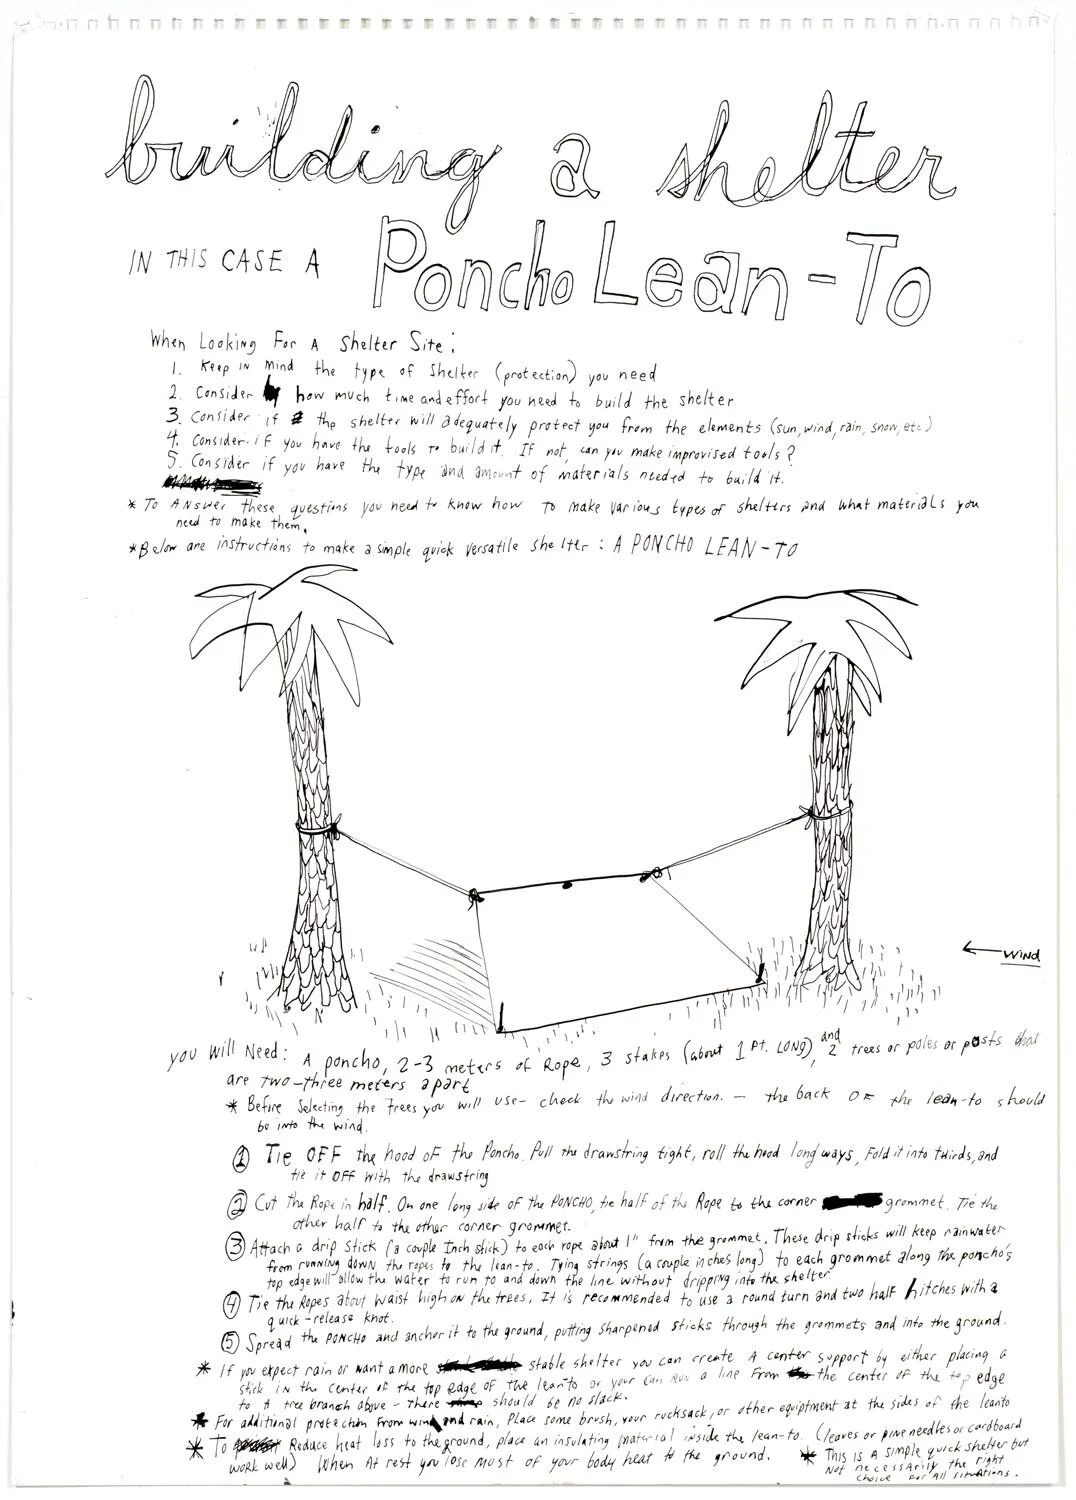 building a shelter
IN THIS CASE A Poncho Lean-To
When Looking For A Shelter Site:
1. Keep in mind the type of shelter (protection) you need
2. Consider how much time and effort you need to build the shelter
3. Consider if the shelter will adequately protect you from the elements (sun, wind, rain, snow, etc.)
4. Consider if you have the tools to build it. If not, can you make improvised tools?
5. Consider if you have the type and amount of materials needed to build it.
* To Answer these questions you need to know how to make various types of shelters and what materials you
need to make them.
* Below are instructions to make a simple quick versatile shelter: A PONCHO LEAN-TO
WIND
you Will Need: A poncho, 2-3 meters of Rope, 3 stakes (about 1 Pt. LONG), and 2 trees or poles or posts that
are two-three meters apart
* Before Selecting the trees you will use - check the wind direction. - the back OF the lean-to should
be into the wind.
1 Tie OFF the hood of the Poncho. Pull the drawstring tight, roll the hood longways, Fold it into thirds, and
tie it OFF with the drawstring
2 Cut the Rope in half. On one long side of the PONCHO, tie half of the Rope to the corner grommet. Tie the
other half to the other corner grommet.
3 Attach a drip stick (a couple Inch stick) to each rope about 1" from the grommet. These drip sticks will keep rainwater
from running down the ropes to the lean-to. Tying strings (a couple inches long) to each grommet along the poncho's
top edge will allow the water to run to and down the line without dripping into the shelter
4 Tie the Ropes about waist high on the trees. It is recommended to use a round turn and two half hitches with a
quick-release knot.
5 Spread the PONCHO and anchor it to the ground, putting sharpened sticks through the grommets and into the ground.
* If you expect rain or want a more stable shelter you can create A center support by either placing a
stick in the center of the top edge of the leanto or your can run a line from the center of the top edge
to A tree branch above - there should be no slack.
* For additional protection from wind and rain, Place some brush, your rucksack, or other equiptment at the sides of the leanto
* To Reduce heat loss to the ground, place an insulating material inside the lean-to. (leaves or pine needles or cardboard
work well) When At rest you lose most of your body heat to the ground.
* This is A simple quick shelter but
Not necessarily the right
choice for All situations.